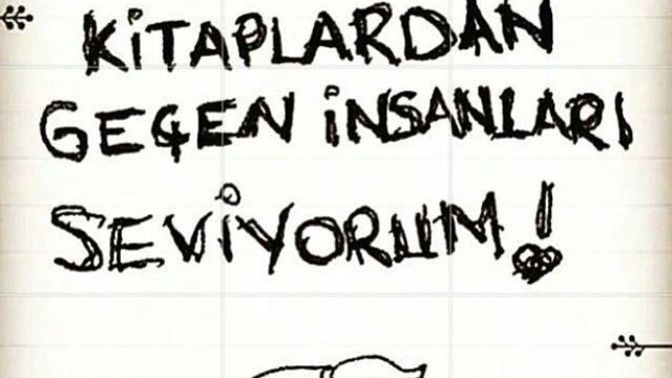 KİTAPLARDAN
GEÇEN İNSANLARI
SEVİYORUM!